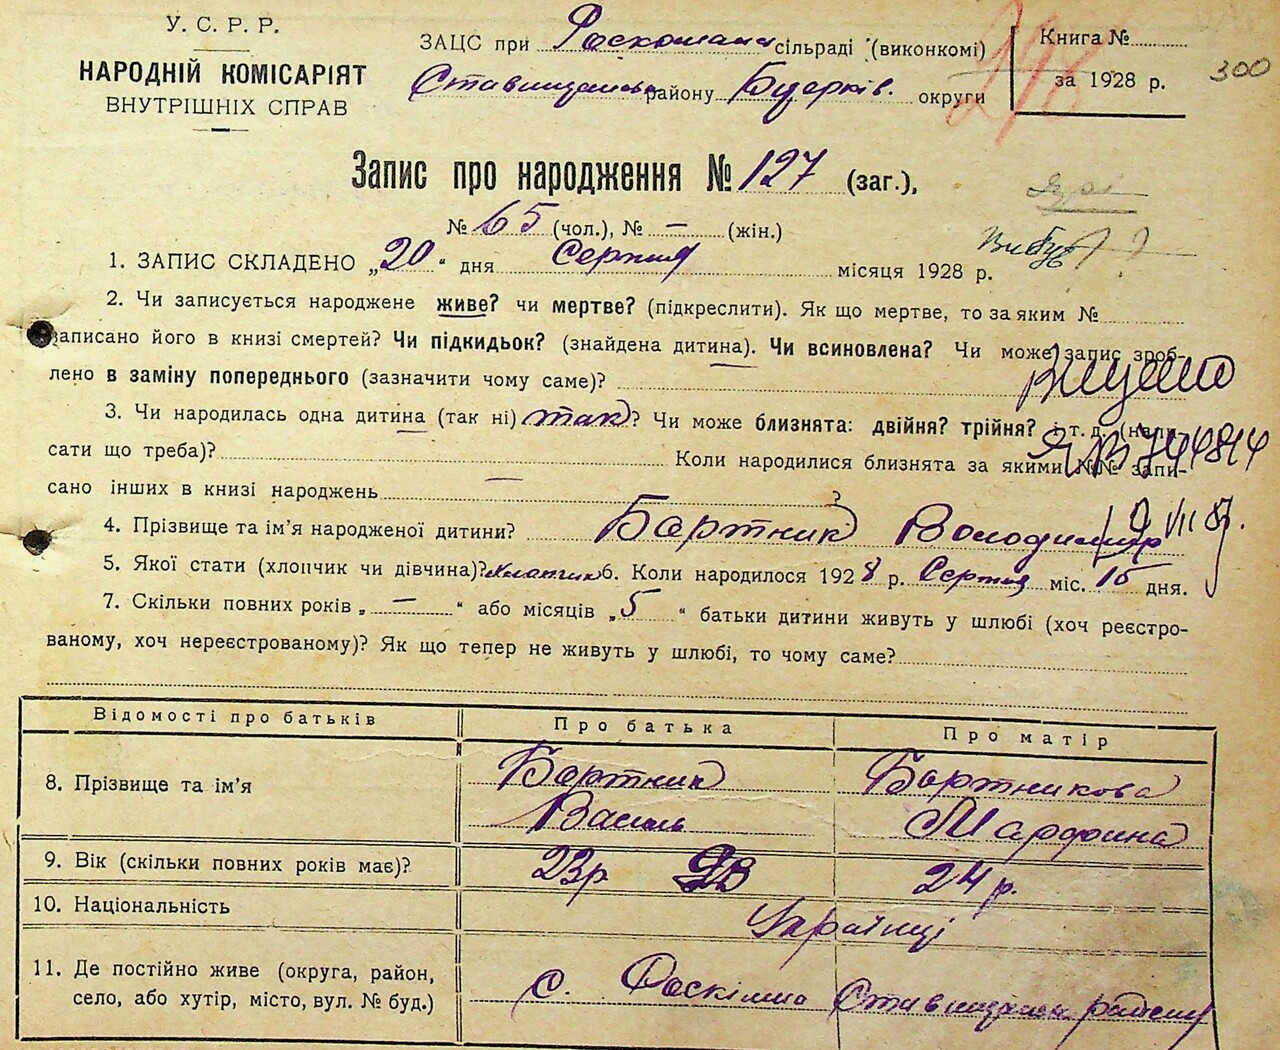 У. С. Р. Р.
НАРОДНІЙ КОМІСАРІЯТ
ВНУТРІШНІХ СПРАВ
ЗАЦС при Роскошана сільраді (виконкомі)
району Біцерків. округи
Книга №
за 1928 р.
300
298
Запис про народження № 127 (заг.),
№ 65 (чол.), № — (жін.)
1. ЗАПИС СКЛАДЕНО „20“ дня Серпня місяця 1928 р.
2. Чи записується народжене живе? чи мертве? (підкреслити). Як що мертве, то за яким №
записано його в книзі смертей? Чи підкидьок? (знайдена дитина). Чи всиновлена? Чи може запис зроб-
лено в заміну попереднього (зазначити чому саме)?
3. Чи народилась одна дитина (так ні) так? Чи може близнята: двійня? трійня? і т. д. (напи-
сати що треба)? Коли народилися близнята за якими №№ запи-
сано інших в книзі народжень — ?
4. Прізвище та ім’я народженої дитини? Бартник Володимир
5. Якої стати (хлопчик чи дівчина)? Хлопчик 6. Коли народилося 1928 р. Серпня міс. 15 дня.
7. Скільки повних років „—“ або місяців „5“ батьки дитини живуть у шлюбі (хоч реєстро-
ваному, хоч нереєстрованому)? Як що тепер не живуть у шлюбі, то чому саме?
Відомості про батьків Про батька Про матір
8. Прізвище та ім’я Бартник Василь Бартникова
9. Вік (скільки повних років має)? 23 р 24 р.
10. Національність Українці
11. Де постійно живе (округа, район,
село, або хутір, місто, вул. № буд.) с.